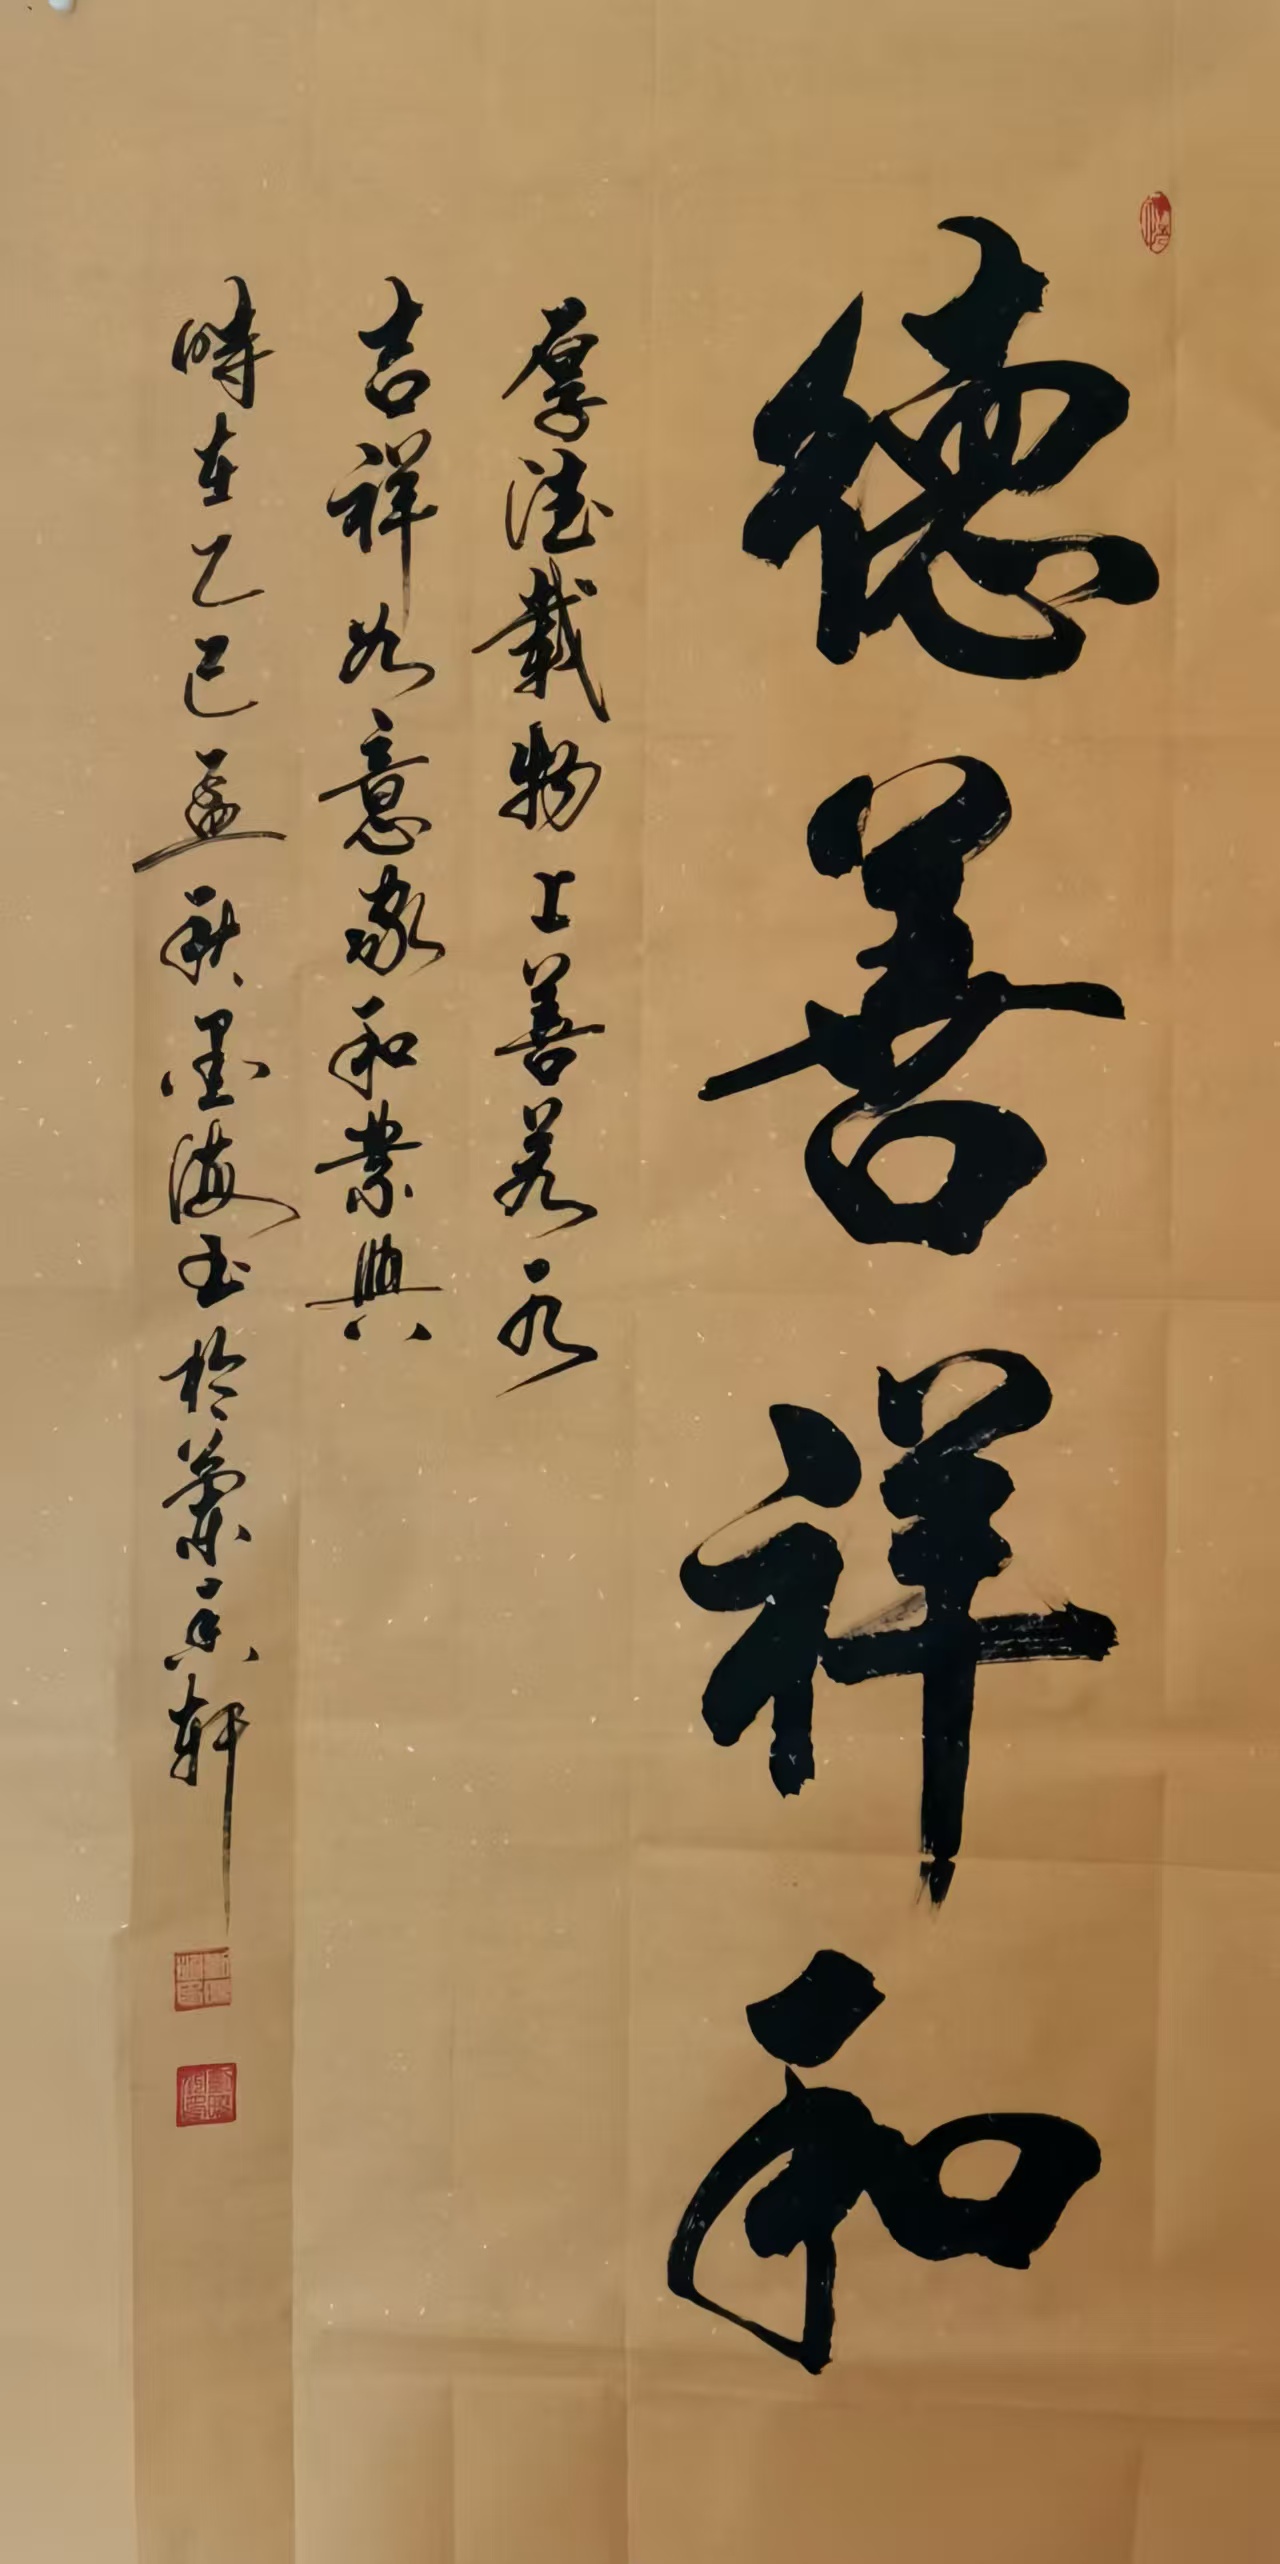 德善祥和
厚德载物上善若水
吉祥如意家和業興
時在乙巳孟秋墨海書於蘭香轩